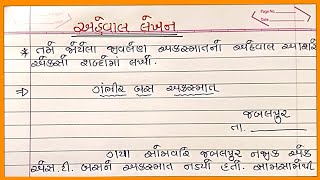 અહેવાલ લેખન
* તમે જોયેલા જીવલેણ અકસ્માતનો અહેવાલ આશરે
એકસો શબ્દોમાં લખો.
⇒ ગંભીર બસ અકસ્માત
જબલપુર
તા.
ગયા સોમવારે જબલપુર નજીક એક
એસ.ટી. બસને અકસ્માત નડયો હતો. સામસામેથી